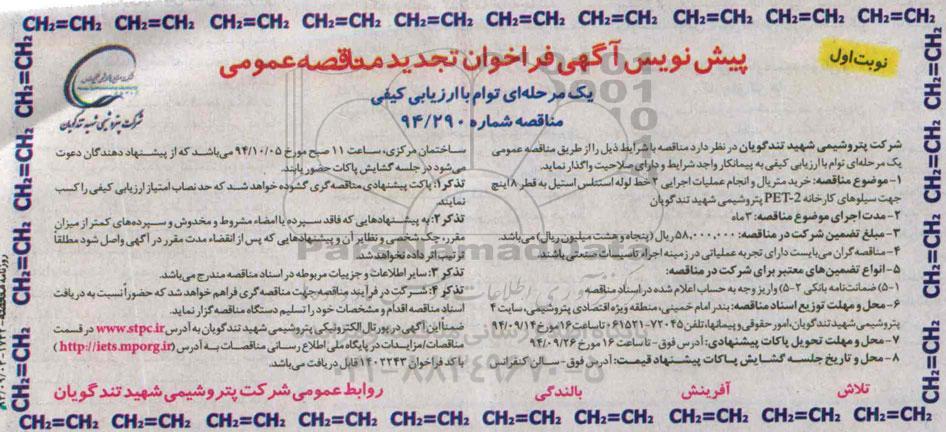 CH₂=CH₂ CH₂=CH₂ CH₂=CH₂ CH₂=CH₂ CH₂=CH₂ CH₂=CH₂ CH₂=CH₂ CH₂=CH₂ CH₂=CH₂ CH₂=CH₂
نوبت اول
پیش نویس آگهی فراخوان تجدید مناقصه عمومی
یک مرحله‌ای توام با ارزیابی کیفی
مناقصه شماره ۹۴/۲۹۰
شرکت پتروشیمی شهید تندگویان
شرکت پتروشیمی شهید تندگویان در نظر دارد مناقصه با شرایط ذیل را از طریق مناقصه عمومی
یک مرحله‌ای توام با ارزیابی کیفی به پیمانکار واجد شرایط و دارای صلاحیت واگذار نماید.
۱- موضوع مناقصه: خرید متریال و انجام عملیات اجرایی ۲ خط لوله استنلس استیل به قطر ۸ اینچ
جهت سیلوهای کارخانه PET-2 پتروشیمی شهید تندگویان
۲- مدت اجرای موضوع مناقصه: ۳ ماه
۳- مبلغ تضمین شرکت در مناقصه: ۵۸,۰۰۰,۰۰۰ ریال (پنجاه و هشت میلیون ریال) می‌باشد.
۴- مناقصه گران می‌بایست دارای تجربه عملیاتی در زمینه اجراء تاسیسات صنعتی باشند.
۵- انواع تضمین‌های معتبر برای شرکت در مناقصه:
۵-۱) ضمانت‌نامه بانکی ۵-۲) واریز وجه به حساب اعلام شده در اسناد مناقصه
۶- محل و مهلت توزیع اسناد مناقصه: بندر امام خمینی، منطقه ویژه اقتصادی پتروشیمی، سایت ۴
پتروشیمی شهید تندگویان، امور حقوقی و پیمانها، تلفن ۷۲۰۴۵-۰۶۱۵۲۱ تا ساعت ۱۶ مورخ ۹۴/۰۹/۱۴
۷- محل و مهلت تحویل پاکات پیشنهادی: آدرس فوق - تا ساعت ۱۶ مورخ ۹۴/۰۹/۲۶
۸- محل و تاریخ جلسه گشایش پاکات پیشنهاد قیمت: آدرس فوق - سالن کنفرانس
ساختمان مرکزی، ساعت ۱۱ صبح مورخ ۹۴/۱۰/۰۵ می‌باشد که از پیشنهاد دهندگان دعوت
می‌شود در جلسه گشایش پاکات حضور یابند.
تذکر ۱: پاکت پیشنهادی مناقصه گری گشوده خواهد شد که حد نصاب امتیاز ارزیابی کیفی را کسب
نمایند.
تذکر ۲: به پیشنهادهایی که فاقد سپرده یا امضاء مشروط و مخدوش و سپرده‌های کمتر از میزان
مقرر، چک شخصی و نظایر آن و پیشنهادهایی که پس از انقضاء مدت مقرر در آگهی واصل شود مطلقا
ترتیب اثر داده نخواهد شد.
تذکر ۳: سایر اطلاعات و جزییات مربوطه در اسناد مناقصه مندرج می‌باشد.
تذکر ۴: شرکت در فرآیند مناقصه جهت مناقصه گری فراهم خواهد شد که حضوراً نسبت به دریافت
اسناد مناقصه اقدام و مشخصات خود را تسلیم دستگاه مناقصه گزار نماید.
ضمنا این آگهی در پورتال الکترونیکی پتروشیمی شهید تندگویان به آدرس www.stpc.ir در قسمت
مناقصات/مزایدات در پایگاه ملی اطلاع رسانی مناقصات به آدرس (http://iets.mporg.ir)
با کد فراخوان ۱۴۰۲۲۴۳ قابل دریافت می‌باشد.
تلاش آفرینش بالندگی
روابط عمومی شرکت پتروشیمی شهید تندگویان
ParsNamadData
۰۲۱-۸۸۳۴۹۶۷۰-۵
CH₂=CH₂ CH₂=CH₂ CH₂=CH₂ CH₂=CH₂ CH₂=CH₂ CH₂=CH₂ CH₂=CH₂ CH₂=CH₂ CH₂=CH₂ CH₂=CH₂